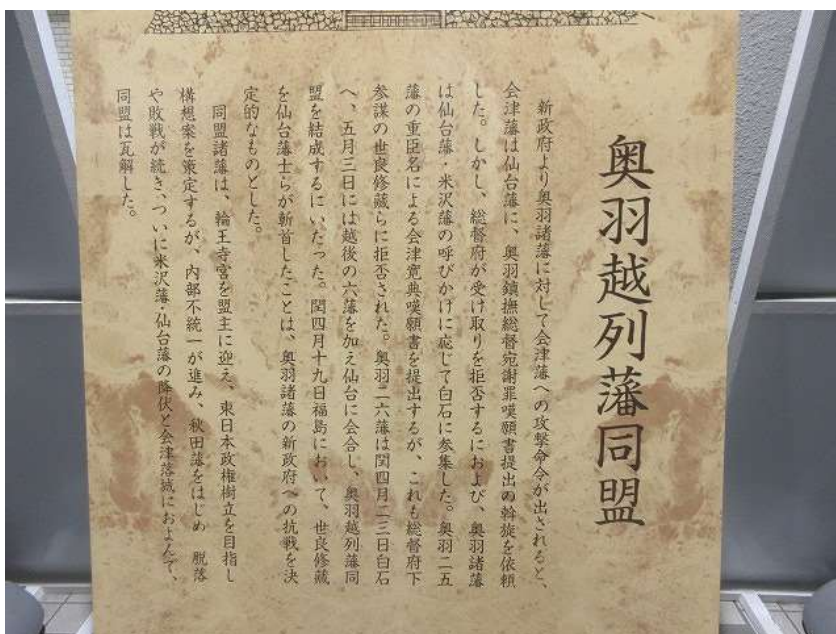 奥羽越列藩同盟
新政府より奥羽諸藩に対して会津藩への攻撃命令が出されると、
会津藩は仙台藩に、奥羽鎮撫総督宛謝罪嘆願書提出の斡旋を依頼
した。しかし、総督府が受け取りを拒否するにおよび、奥羽諸藩
は仙台藩・米沢藩の呼びかけに応じて白石に参集した。奥羽二五
藩の重臣名による会津寛典嘆願書を提出するが、これも総督府下
参謀の世良修蔵らに拒否された。奥羽二六藩は閏四月二三日白石
へ、五月三日には越後の六藩を加え仙台に会合し、奥羽越列藩同
盟を結成するにいたった。閏四月十九日福島において、世良修蔵
を仙台藩士らが斬首したことは、奥羽諸藩の新政府への抗戦を決
定的なものとした。
同盟諸藩は、輪王寺宮を盟主に迎え、東日本政権樹立を目指し
構想案を策定するが、内部不統一が進み、秋田藩をはじめ 脱落
や敗戦が続き、ついに米沢藩・仙台藩の降伏と会津落城におよんで、
同盟は瓦解した。